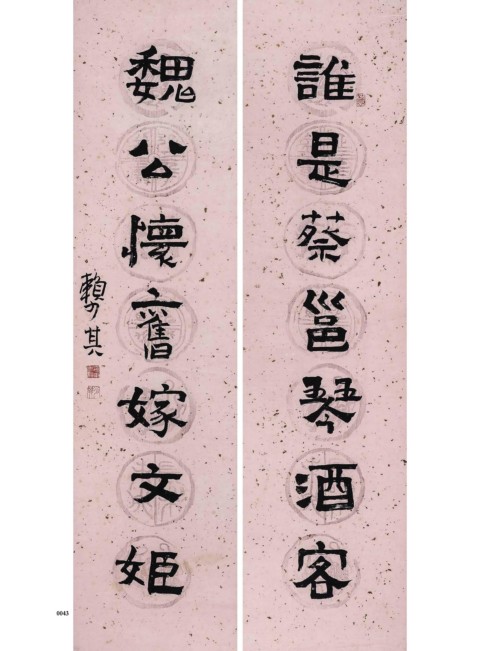 誰是蔡邕琴酒客
魏公懷舊嫁文姬
賴少其
0043